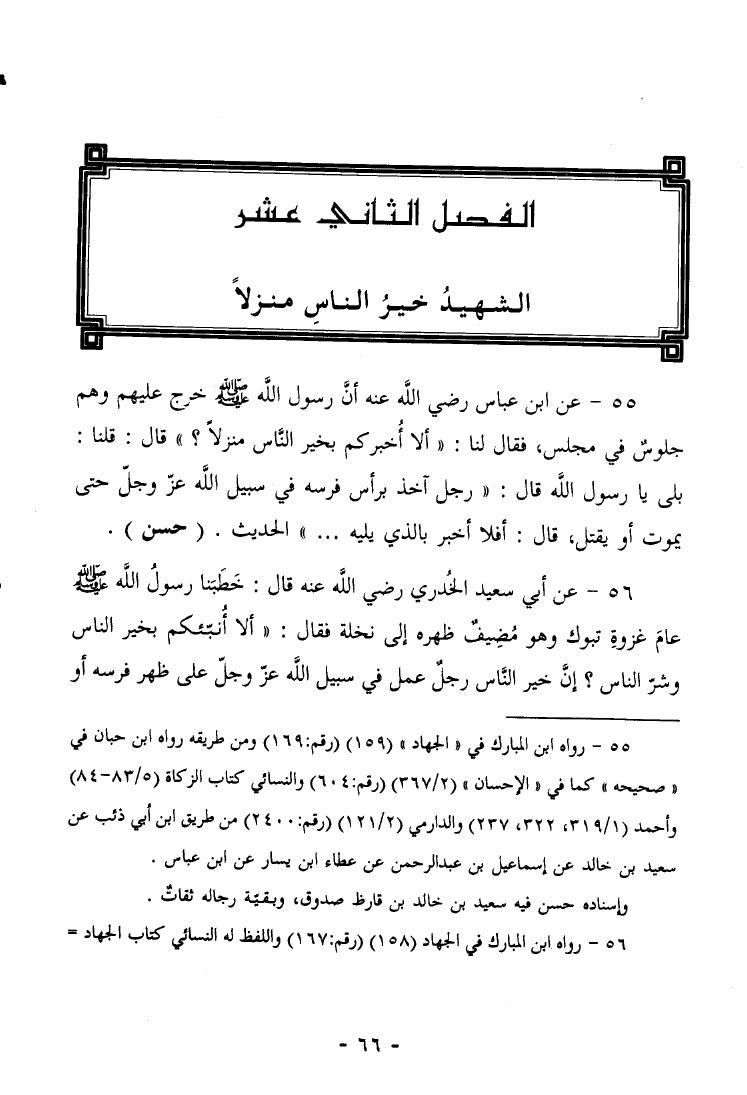 الفصل الثاني عشر
الشهيدُ خيرُ الناسِ منزلاً
٥٥ - عن ابن عباس رضي اللَّه عنه أنَّ رسول اللَّه ﷺ خرج عليهم وهم
جلوسٌ في مجلس، فقال لنا : « ألا أُخبركم بخير النَّاس منزلاً ؟ » قال : قلنا :
بلى يا رسول اللَّه قال : « رجل آخذ برأس فرسه في سبيل اللَّه عزّ وجلّ حتى
يموت أو يقتل، قال : أفلا أخبر بالذي يليه ... » الحديث . ( حسن ) .
٥٦ - عن أبي سعيد الخُدري رضي اللَّه عنه قال : خَطَبَنا رسولُ اللَّه ﷺ
عامَ غزوةِ تبوك وهو مُضِيفٌ ظهره إلى نخلة فقال : « ألا أُنبّئكم بخير الناس
وشرّ الناس ؟ إنَّ خير النَّاس رجلٌ عمل في سبيل اللَّه عزّ وجلّ على ظهر فرسه أو
٥٥ - رواه ابن المبارك في « الجهاد » (١٥٩) (رقم:١٦٩) ومن طريقه رواه ابن حبان في
« صحيحه » كما في « الإحسان » (٣٦٧/٢) (رقم:٦٠٤) والنسائي كتاب الزكاة (٨٣/٥-٨٤)
وأحمد (٣١٩/١، ٣٢٢، ٢٣٧) والدارمي (١٢١/٢) (رقم:٢٤٠٠) من طريق ابن أبي ذئب عن
سعيد بن خالد عن إسماعيل بن عبدالرحمن عن عطاء ابن يسار عن ابن عباس .
وإسناده حسن فيه سعيد بن خالد بن قارظ صدوق، وبقيّة رجاله ثقاتٌ .
٥٦ - رواه ابن المبارك في الجهاد (١٥٨) (رقم:١٦٧) واللفظ له النسائي كتاب الجهاد =
- ٦٦ -